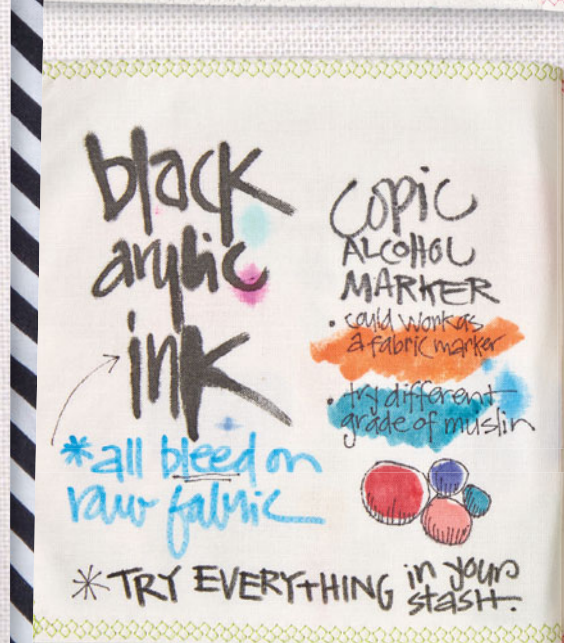 black
arylic
ink
*all bleed on
raw fabric
COPIC
ALCOHOL
MARKER
• could work as
a fabric marker
• try different
grade of muslin
* TRY EVERYTHING in your
stash.